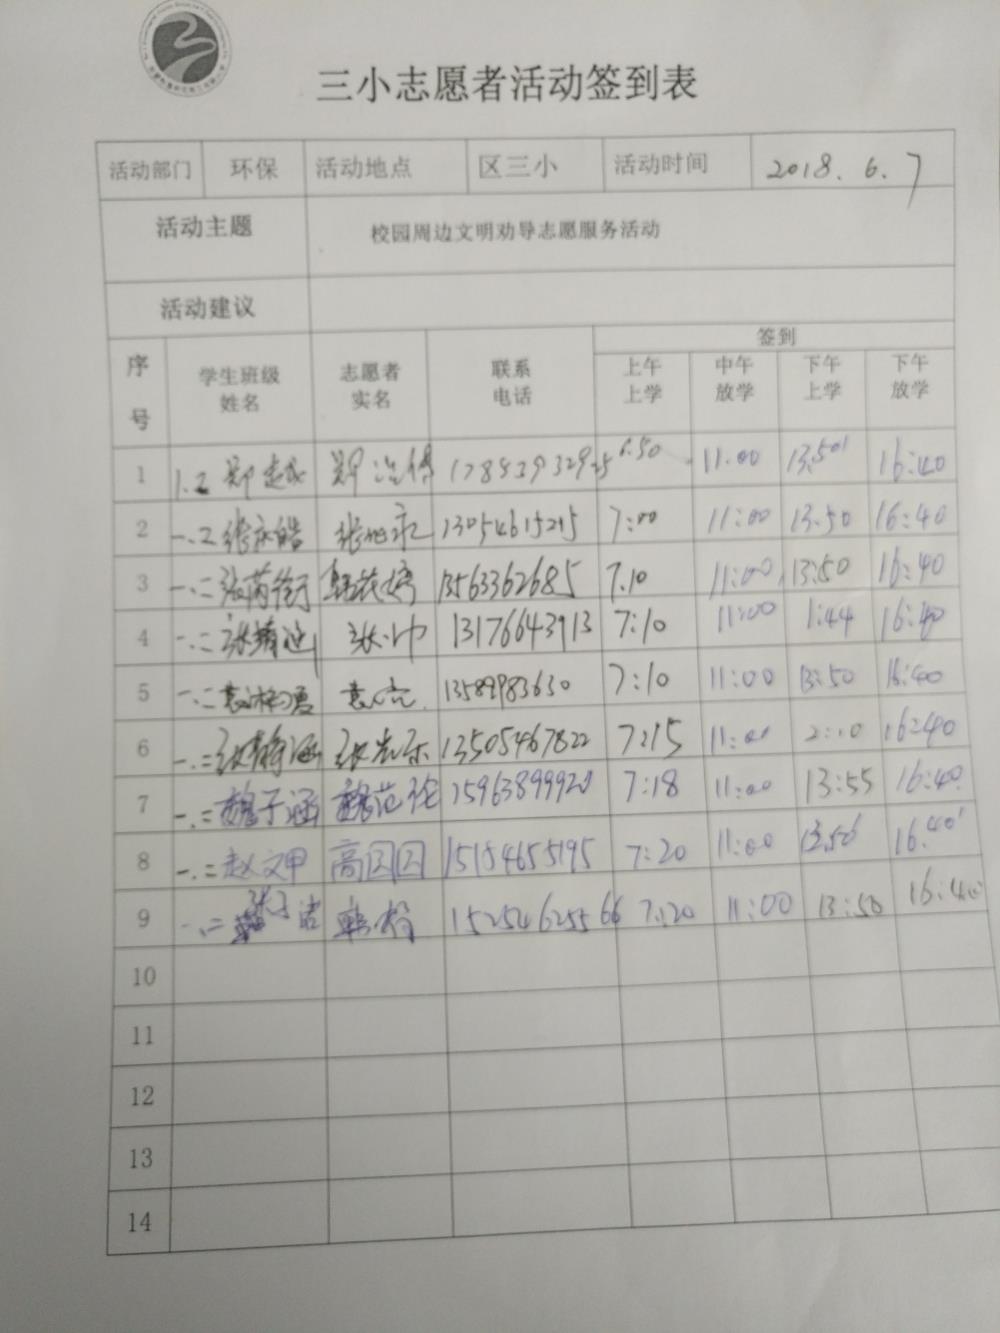 三小志愿者活动签到表
活动部门 环保 活动地点 区三小 活动时间 2018.6.7
活动主题 校园周边文明劝导志愿服务活动
活动建议
序号 学生班级姓名 志愿者实名 联系电话 签到
上午上学 中午放学 下午上学 下午放学
1 1.2 郑 郑 6.50 11.00 13.50 16:40
2 一.2 张永皓 13054615215 7:00 11:00 13.50 16:40
3 一.二 13563362685 7.10 11:00 13:50 16:40
4 一.二 张靖 张 13176643913 7:10 11:00 1:44 16:40
5 一.二 13589983630 7:10 11:00 13:50 16:40
6 一.二 张静涵 张 13505467822 7:15 11:00 2:10 16:40
7 一.二 魏子涵 魏范伦 15963899920 7:18 11:00 13:55 16:40
8 一.二 赵文甲 高囡囡 15154655195 7:20 11:00 13.50 16.40
9 一.二 张子洁 韩 15254625566 7:20 11:00 13:50 16:40
10
11
12
13
14